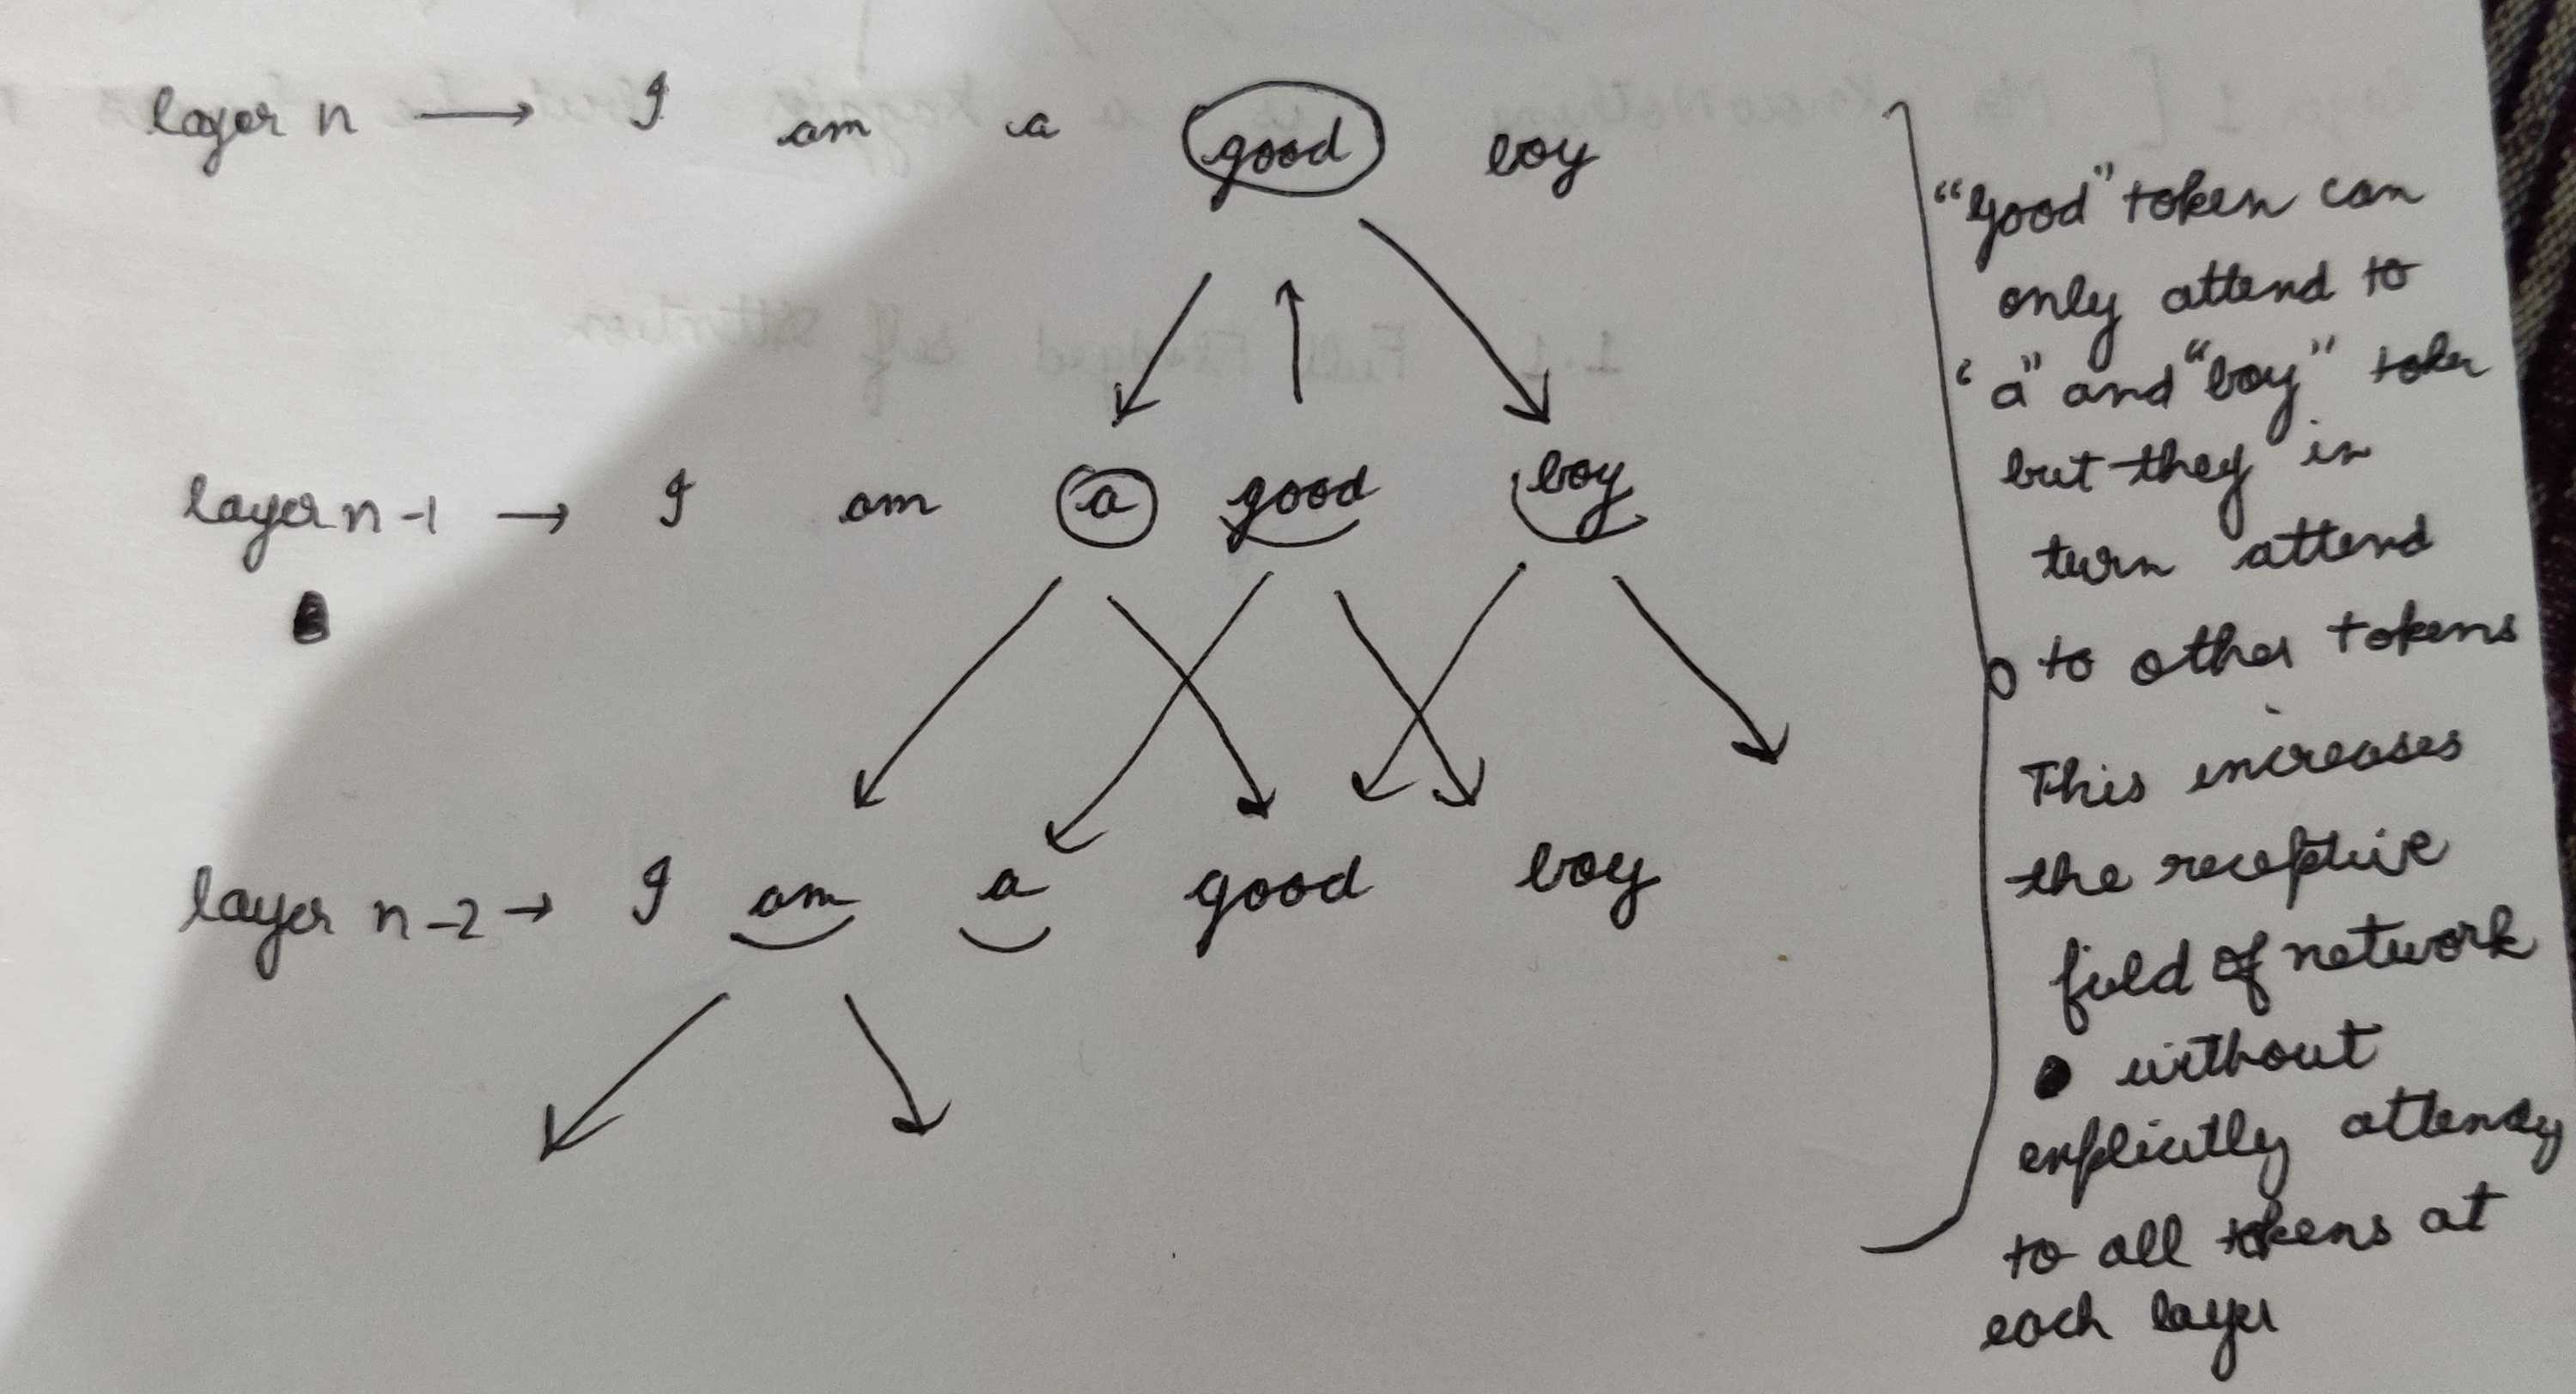 layer n → I am a good boy
layer n-1 → I am a good boy
layer n-2 → I am a good boy
"good" token can
only attend to
"a" and "boy" token
but they in
turn attend
to other tokens
This increases
the receptive
field of network
without
explicitly attendy
to all tokens at
each layer
1.1 Full Fledged self Attention